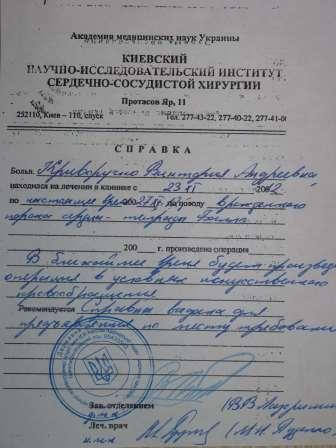 Академия медицинских наук Украины
КИЕВСКИЙ
НАУЧНО-ИССЛЕДОВАТЕЛЬСКИЙ ИНСТИТУТ
СЕРДЕЧНО-СОСУДИСТОЙ ХИРУРГИИ
Протасов Яр, 11
252110, Киев – 110, спуск Тел. 277-43-22, 277-40-22, 277-41-
СПРАВКА
Больн. Криворучко Виктория Андреевна
находился на лечении в клинике с 23 200 2
по настоящее время 200 по поводу врожденного
порока сердца - тетрада Фалло
200 г. произведена операция
В ближайшее время будет произведе
операция в условиях искусственного
кровообращения
Рекомендуется Справка выдана для
предъявления по месту требован
Зав. отделением
Леч. врач